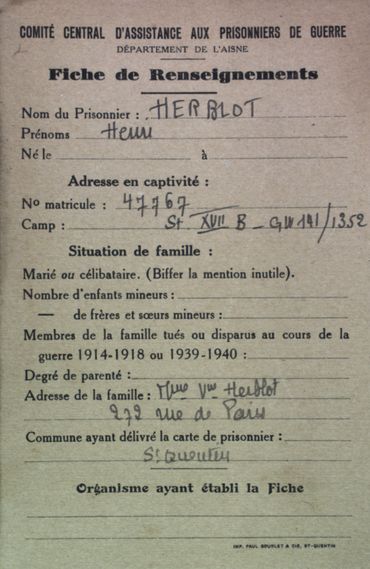 COMITÉ CENTRAL D'ASSISTANCE AUX PRISONNIERS DE GUERRE
DÉPARTEMENT DE L'AISNE
Fiche de Renseignements
Nom du Prisonnier : HERBLOT
Prénoms Henri
Né le à
Adresse en captivité :
No matricule : 47767
Camp : St XVII B - GW 141/1352
Situation de famille :
Marié ou célibataire. (Biffer la mention inutile).
Nombre d'enfants mineurs :
— de frères et sœurs mineurs :
Membres de la famille tués ou disparus au cours de la
guerre 1914-1918 ou 1939-1940 :
Degré de parenté :
Adresse de la famille : Mme Vve Herblot
272 rue de Paris
Commune ayant délivré la carte de prisonnier :
St Quentin
Organisme ayant établi la Fiche
IMP. PAUL BOURLET & CIE, ST-QUENTIN